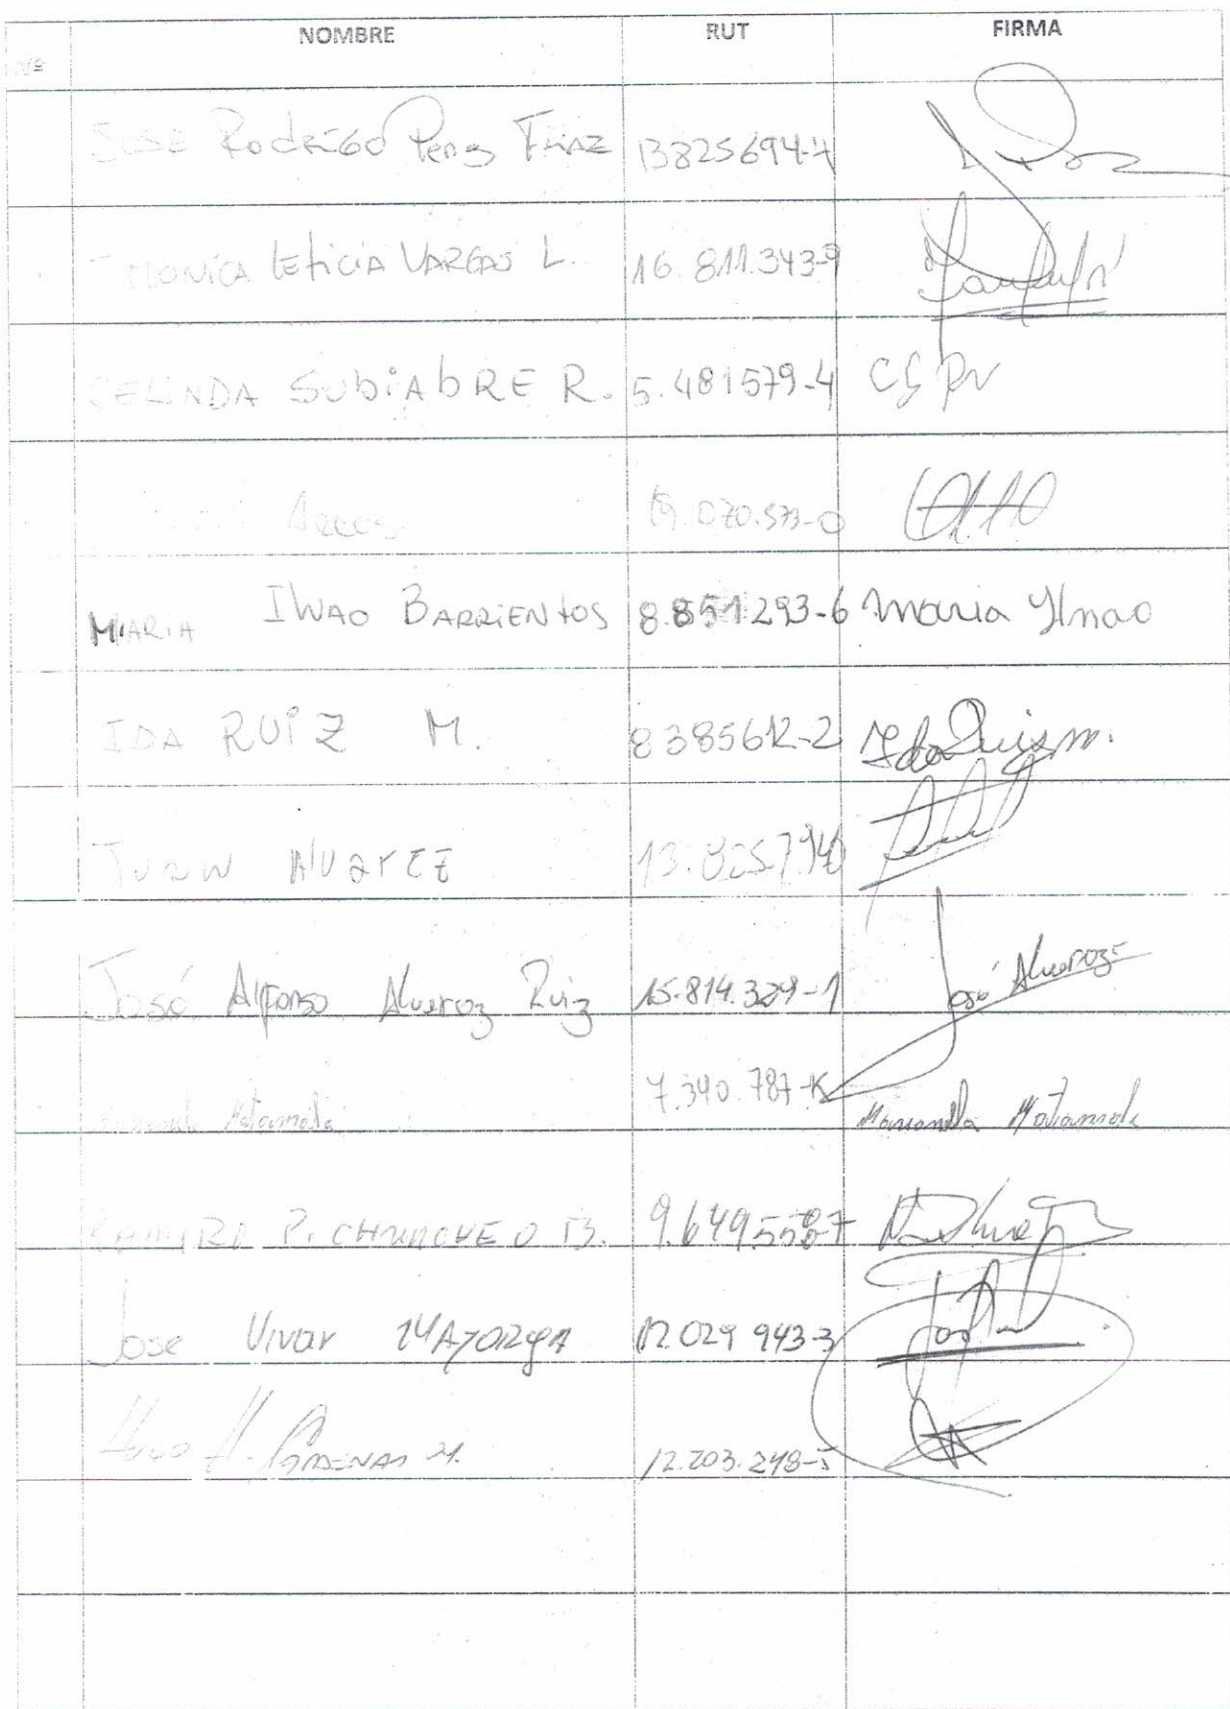 Nº NOMBRE RUT FIRMA
JOSE Rodrigo Perez 13825694-4
MONICA LETICIA VARGAS L. 16.811.343-9
CELINDA SUBIABRE R. 5.481579-4 CS RV
Arcos 19.070.573-0
MARIA ILNAO BARRIENTOS 8.851293-6 Maria Ilnao
IDA RUIZ M. 8385612-2 Ida Ruiz m.
JUAN Alvarez 13.825.794
José Alfonso Alvarez Ruiz 15.814.329-1 José Alvarez
Matamala 7.340.787-K Matamala
RAMIRO P. B. 9.649.558-7
Jose Vivar MAYORGA 12.029 943-3
Hugo H. CARDENAS M. 12.203.248-5